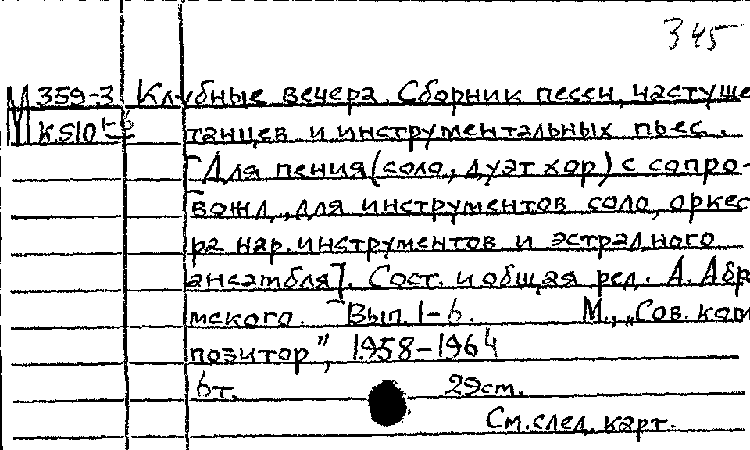 345
М 359-3 Клубные вечера. Сборник песен, частуше
К510 танцев и инструментальных пьес.
[Для пения (соло, дуэт хор) с сопро-
вожд., для инструментов соло, оркес
ра нар. инструментов и эстрадного
ансамбля]. Сост. и общая ред. А. Абр
мского. Вып. 1-6. М., „Сов. ком
позитор", 1958-1964
6т. 29см.
См. след. карт.